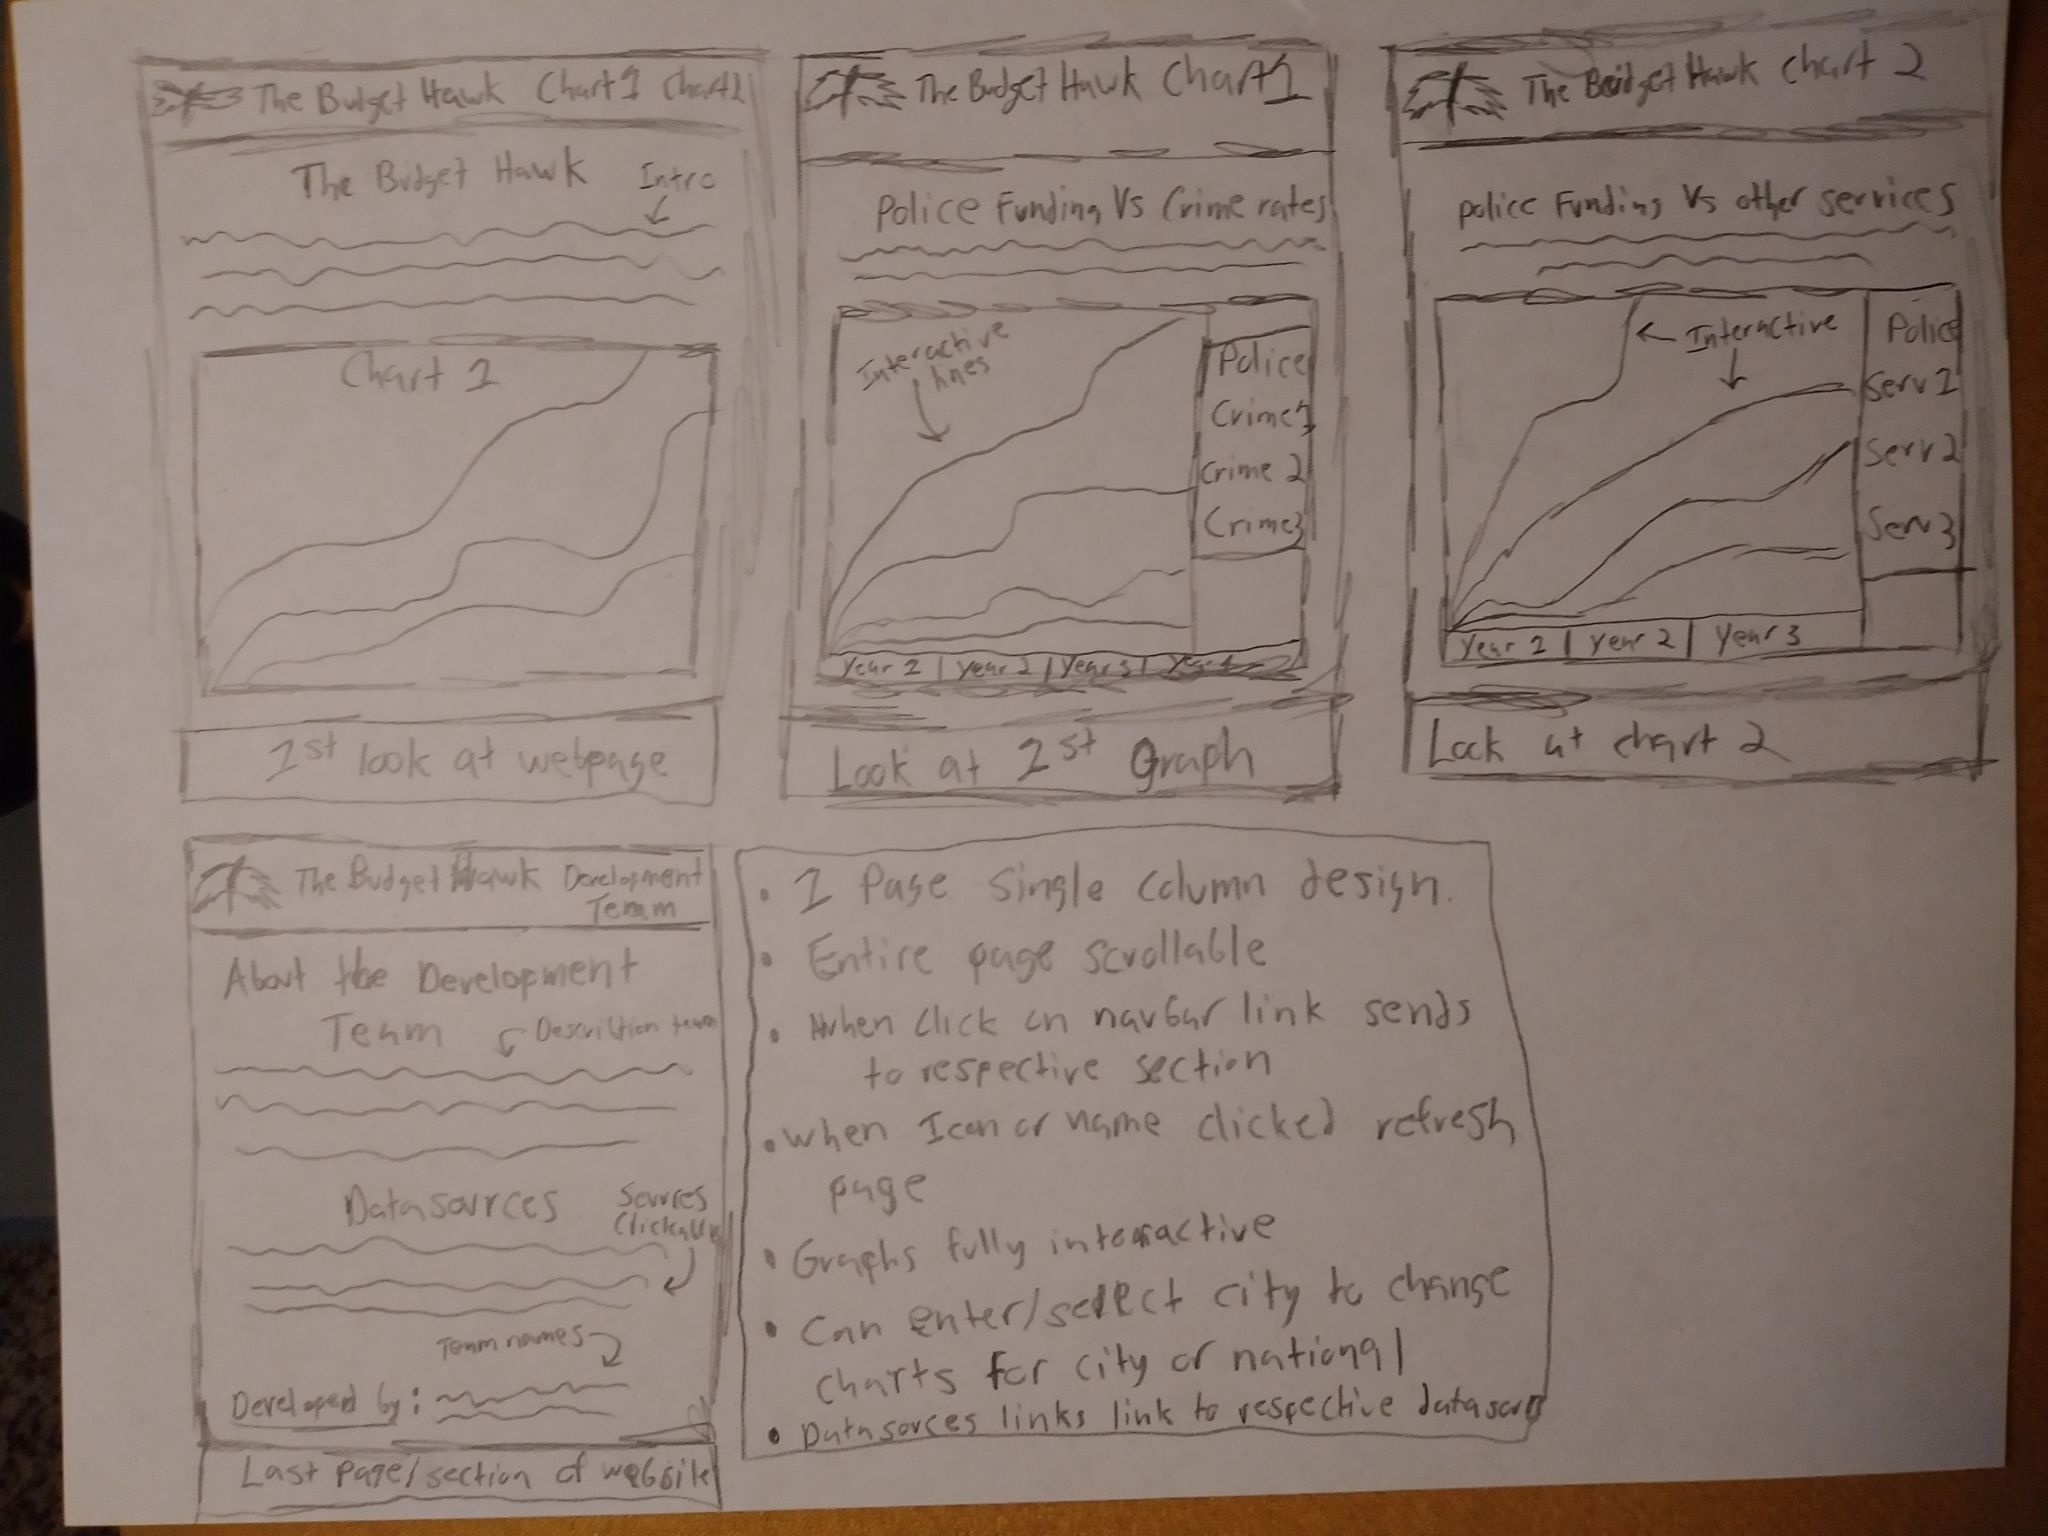 The Budget Hawk Chart 1 Chart 2
The Budget Hawk
Intro
Chart 1
1st look at webpage
The Budget Hawk Chart 1
Police Funding Vs Crime rates
Interactive
lines
Police
Crime 1
Crime 2
Crime 3
Year 1 | Year 2 | Year 3 | Year 4
Look at 1st Graph
The Budget Hawk Chart 2
Police Funding Vs other services
Interactive
Police
Serv 1
Serv 2
Serv 3
Year 1 | Year 2 | Year 3
Look at chart 2
The Budget Hawk Development
Team
About the Development
Team
Description team
Datasources
Sources
Clickable
Team names
Developed by:
Last page/section of website
• 1 Page single column design.
• Entire page scrollable
• When click on navbar link sends
to respective section
• when Icon or name clicked refresh
page
• Graphs fully interactive
• Can enter/select city to change
charts for city or national
• Datasorces links link to respective datasorc